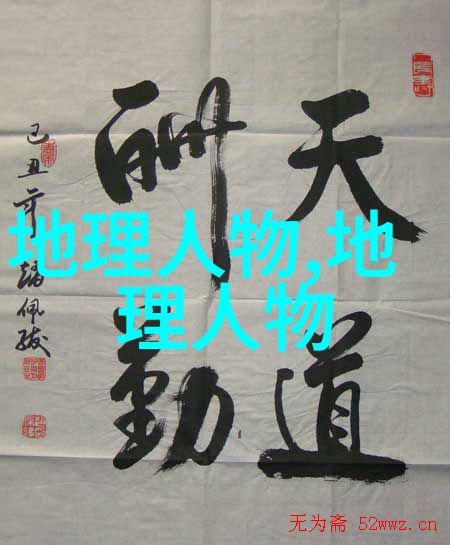 天道
酬勤
己丑
佩
地理人物,地
理人物
无为斋 52wwz.cn